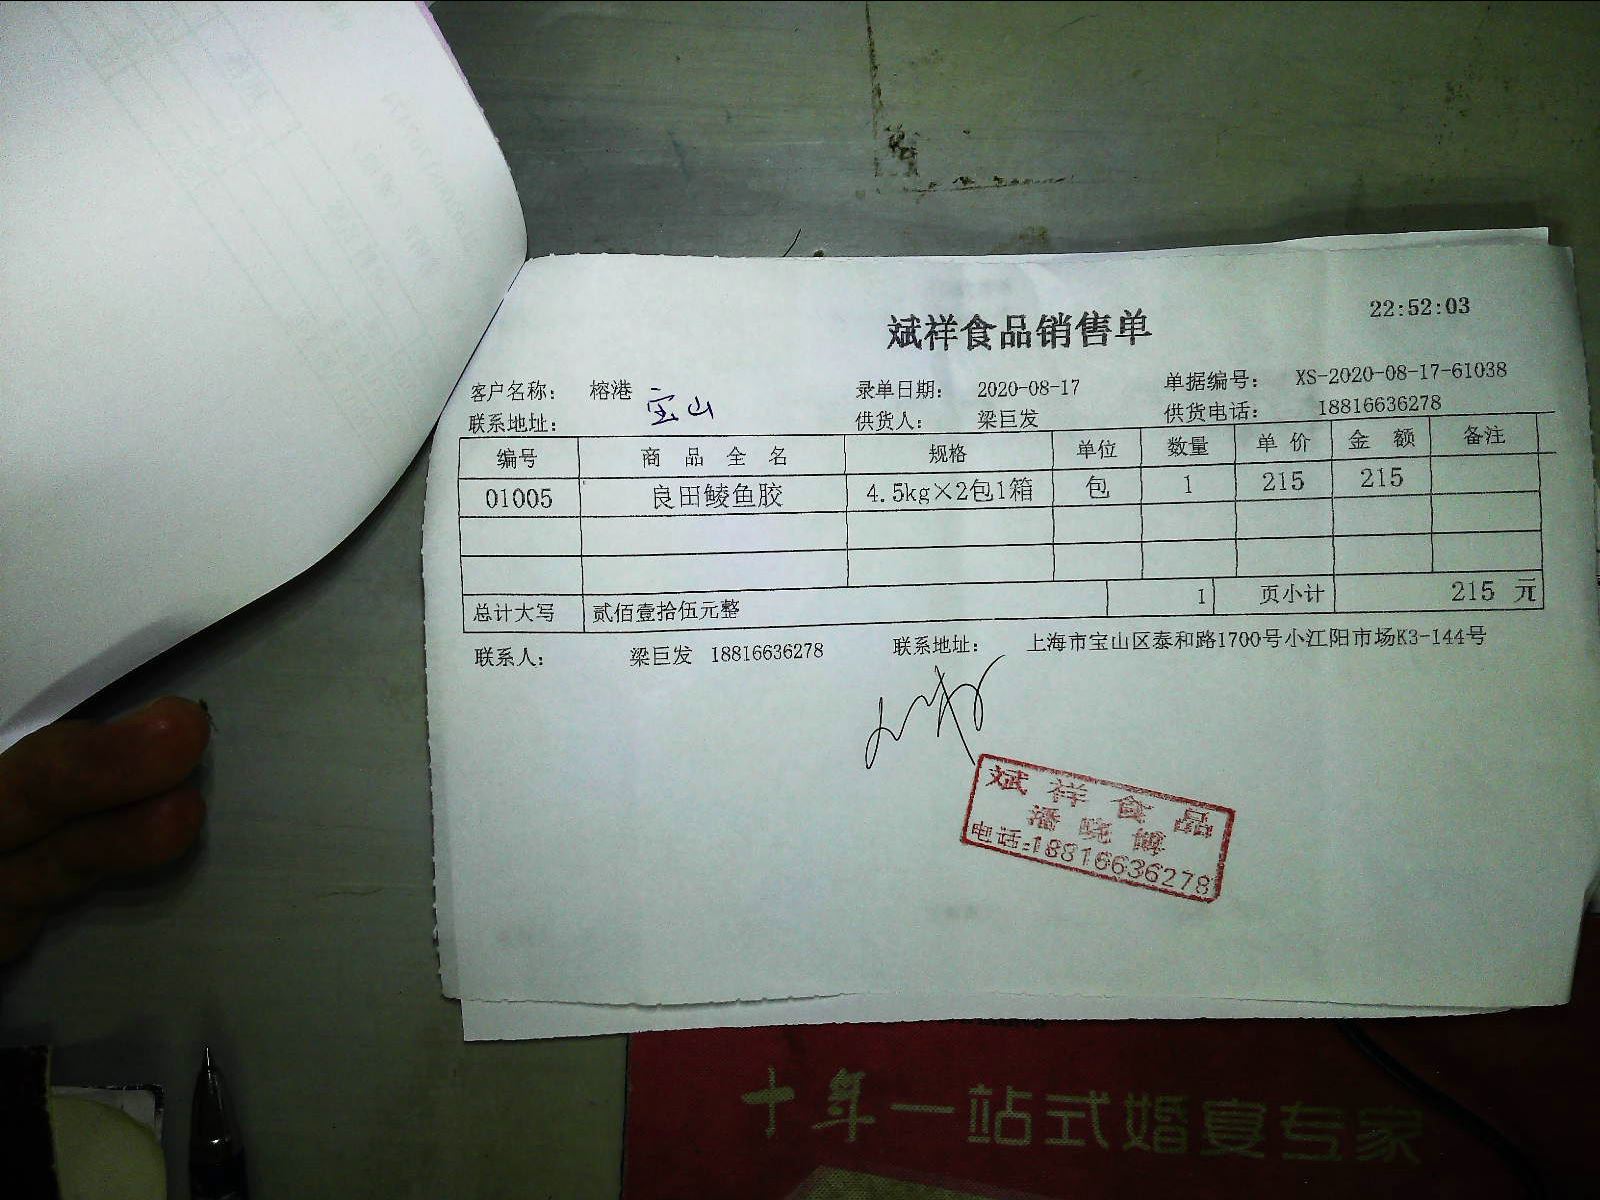 22:52:03
斌祥食品销售单
客户名称： 榕港 宝山 录单日期： 2020-08-17 单据编号： XS-2020-08-17-61038
联系地址： 供货人： 梁巨发 供货电话： 18816636278
编号 商品全名 规格 单位 数量 单价 金额 备注
01005 良田鲮鱼胶 4.5kg×2包1箱 包 1 215 215
总计大写 贰佰壹拾伍元整 1 页小计 215 元
联系人： 梁巨发 18816636278 联系地址： 上海市宝山区泰和路1700号小江阳市场K3-144号
斌祥食品
潘晓
电话:18816636278
十年一站式婚宴专家